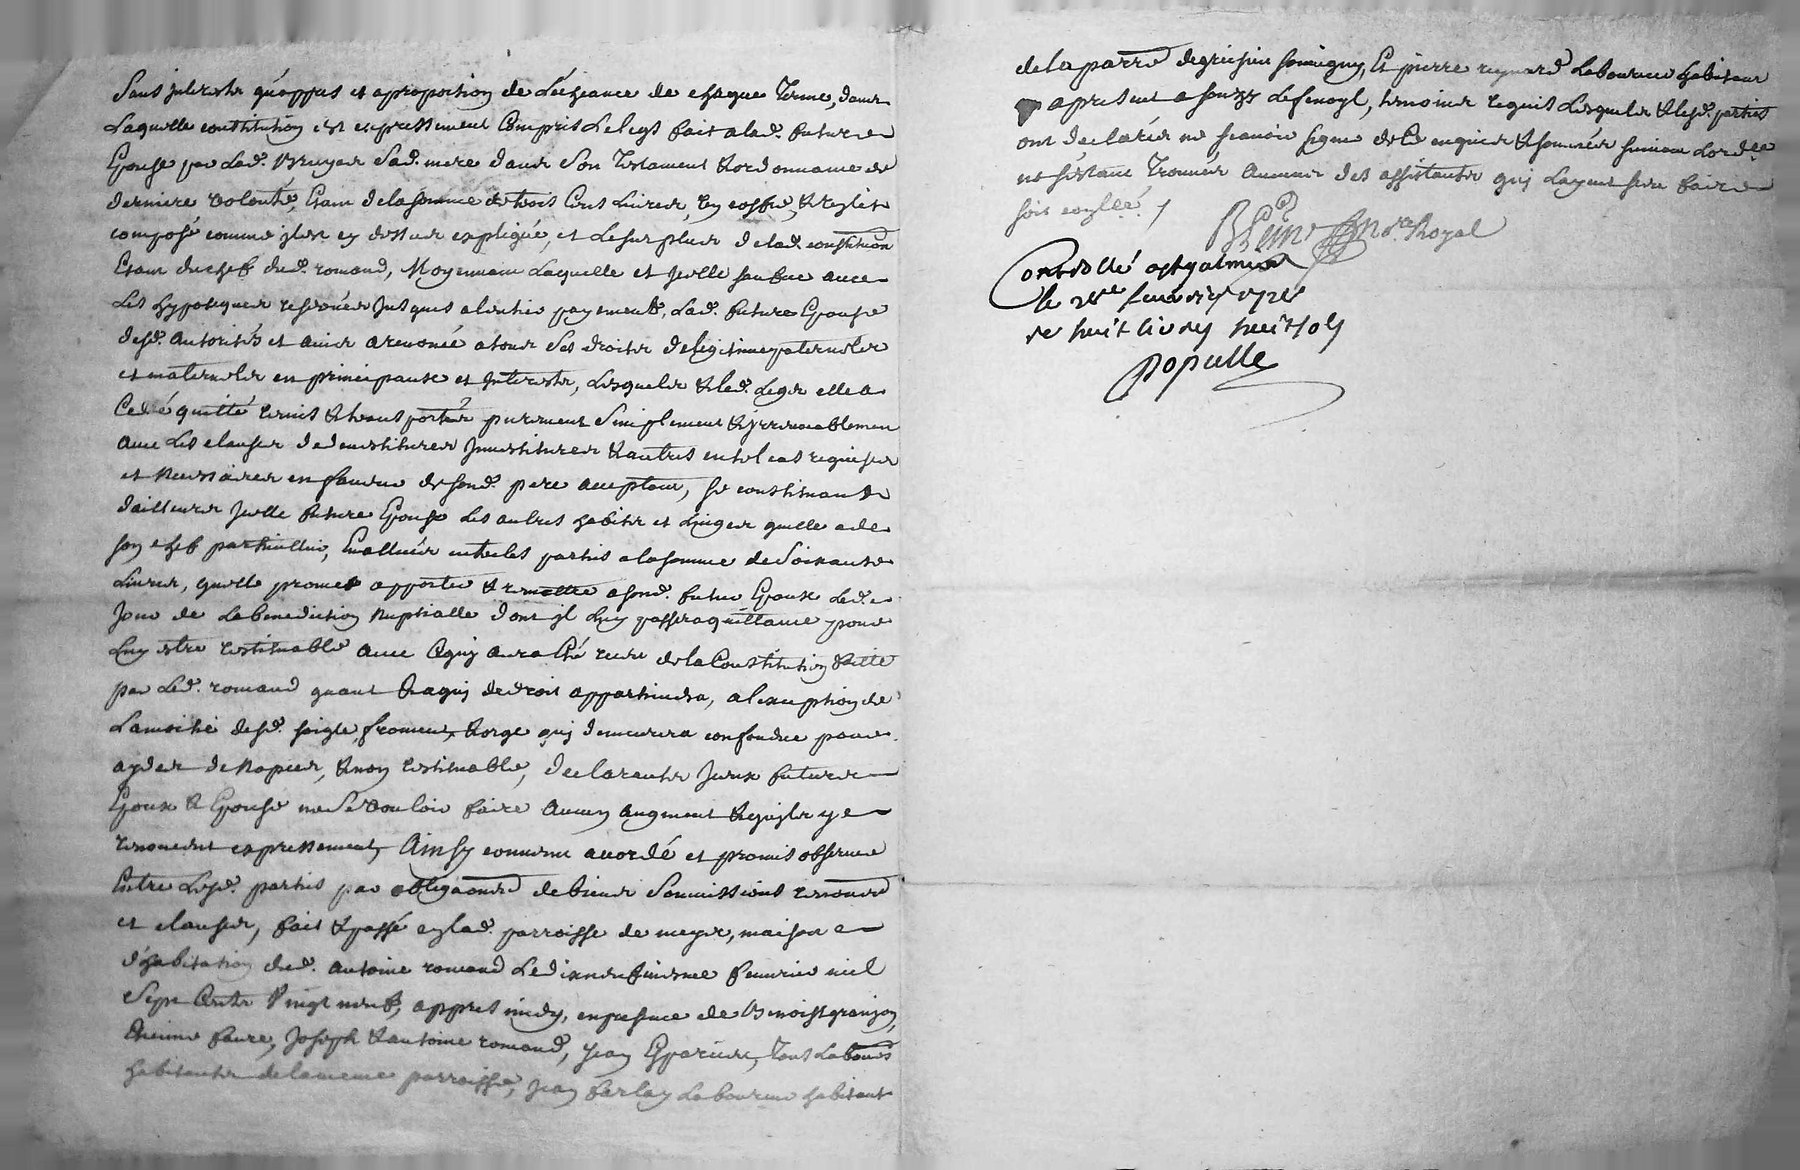 Sans jnterestz qu'appres et aproportion de l'écheance de chaque terme, dans
Laquelle constitution est expressement Compris Le legs fait a lad. future
Epouse par Lad. Bruyas sad. mere dans son Testament & ordonnance de
derniere volonté, Etant de la somme de trois Cens Livres, un coffre, &
composé comme jl est cy dessus expliqué, et Le surplus de lad. constitution
Etant du chef dud. romand, Moyennant Laquelle et jcelle sauve avec
Les hypoteques reservées jusques a l'entier payement, Lad. future Epouse
desd. autorités et avis a renoncé a tous ses droits de legitime paternelz
et maternelz en principaux et jnterestz, Lesquelz & led. Legs elle a
Cedé quitté remis & transporté purement simplement & jrrevocablement
avec Les clauses de devestitures jnvestitures & autres en tel cas requises
et Necessaires en faveur de sond. pere acceptant, se constituant
d'ailleurs jcelle future Epouse Les autres habits et Linges qu'elle a de
son chef particullier, Evallués entre les parties a la somme de soixante
Livres, quelle promet apporter & remettre a sond. futur Epoux Led.
jour de La benediction Nuptialle dont jl Luy passera quittance pour
Luy estre restituable avec Ce quy aura esté receu de la Constitution faite
par Led. romand quant & a quy de droit appartiendra, a l'exception de
La moitié desd. seigle, froment, & orge quy demeurera confondue pour
ayder de Nopces, & non restituable, declarants jceux futurs
Epoux & Epouse ne se vouloir faire aucun augment & y
renoncent expressement, Ainsy convenu accordé et promis observer
Entre Lesd. parties par obligaons de biens soumissions renonons
et clauses, fait & passé en lad. parroisse de meys, maison
d'habitation dud. antoine romand Le feuvrier mil
sept Centz Vingt neuf, appres midy, en presence de Benoist granjon,
Etienne faure, joseph & antoine romand, jean Epariere, tous Laboureurs
habitants de la meme parroisse, jean ferlay Laboureur habitant
de la parre de grezieu souvigny, Et pierre reynard Laboureur habitant
a present a Le fenoyl, temoins requis Lesquelz & lesd. parties
ont declarés ne scavoir signer de Ce enquis & sommés suivant Lord.ce
ne s'estant Trouvés aucuns des assistants quy L'ayent sceu faire
soit conllé /
No.re Royal
Controllé a
le feuvrier
re huit livres huit sols
Populle